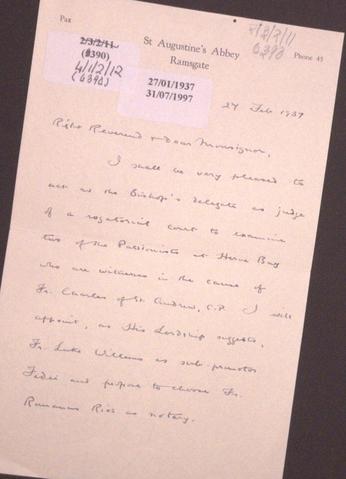 Pax
2/3/2/11
(0390)
4/1/2/12
(0390)
St Augustine's Abbey
Ramsgate
2/3/2/11
0390
Phone 45
27/01/1937
31/07/1997
27 Feb 1937
Right Reverend & dear Monsignor,
I shall be very pleased to
act as the Bishop's delegate as judge
of a rogatorial court to examine
two of the Passionists at Herne Bay
who are witnesses in the cause of
Fr. Charles of St. Andrew, C.P. I will
appoint, as His Lordship suggests,
Fr. Luke Williams as sub-promotor
Fidei and propose to choose Fr.
Romanus Rios as notary.